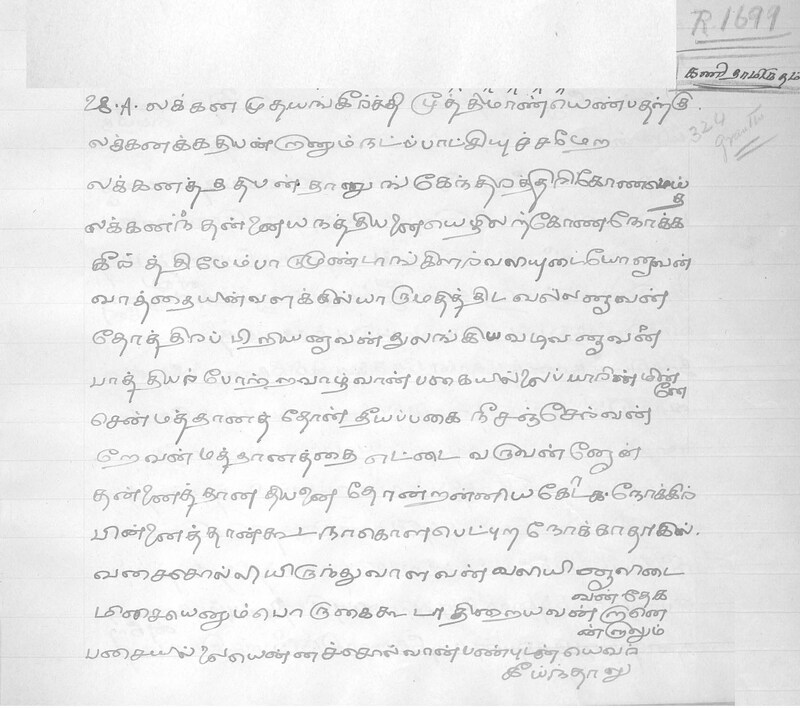 R 1699
கணிதாமிர்தம்
324
28.A. லக்கன முதயங்கீர்த்தி மூர்த்திமாண்யெண்பதற்கு.
லக்கனக்கதியன் றானும் நட்ப்பாட்சியுச்சமேற
லக்கனத்ததியன் தானுங்கேந்திரத்திரிகோணமாய்த
லக்கனந் தன்னையநத்தியனையெழிலற்கோண நோக்க
கீர்த்திமேம்பாடுமுண்டாங்கிளர்வலியுடையோனவன்
வாத்தையின்வளக்கில்யாருமதித்திட வல்லனவன்
தோத்திரப் பிறியனவன் துலங்கியவடிவனவன்
பாத்தியர்போற்றவாழ்வான் பகையில்லைப்யாரின்மின்னே
சென்மத்தானத் தோன் தீயப்பகை நீசஞ்சேல்வன்
றேவன் மத்தானத்தை எட்டை வருவன்னேன்
தன்னைத்தான தியனை தோன்றன்னிய கேடிக நோக்கில்
பின்னைத்தான்கூடநாகொளபெட்புற நோக்காதாகில்.
வசைசொல்லியிருந்துவாளவன் வலியினூலிடை
மிசையெனும்பொருகைகூடாதிறையவன் றானெ வன்தேக
பசையில்லையென்னச்சொல்வான்பண்புடன் யெவர் ன்றாலும்
கீய்ந்தாலு